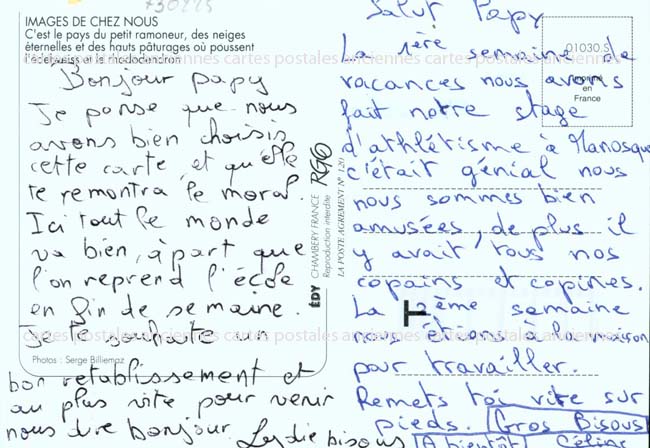 730225
IMAGES DE CHEZ NOUS
C'est le pays du petit ramoneur, des neiges
éternelles et des hauts pâturages où poussent
l'edelweiss et le rhododendron
Bonjour papy
Je pense que nous
avons bien choisis
cette carte et qu'elle
te remontra le moral.
Ici tout le monde
va bien, à part que
l'on reprend l'école
en fin de semaine.
Je te souhaite un
Photos : Serge Billiempz
bon retablissement et
au plus vite pour venir
nous dire bonjour Leslie bisous
ÉDY CHAMBERY FRANCE
Reproduction interdite
LA POSTE AGREMENT N° 120
01030.S
Imprimé
en
France
Salut Papy
La 1ère semaine de
vacances nous avons
fait notre stage
d'athlétisme à Manosque
c'était génial nous
nous sommes bien
amusées, de plus il
y avait tous nos
copains et copines.
La 2ème semaine
nous étions à la maison
pour travailler.
Remets toi vite sur
pieds. Gros Bisous
A bientôt Céline
cartes postales anciennes cartes postales anciennes cartes postales
cartes postales anciennes cartes postales anciennes cartes postales